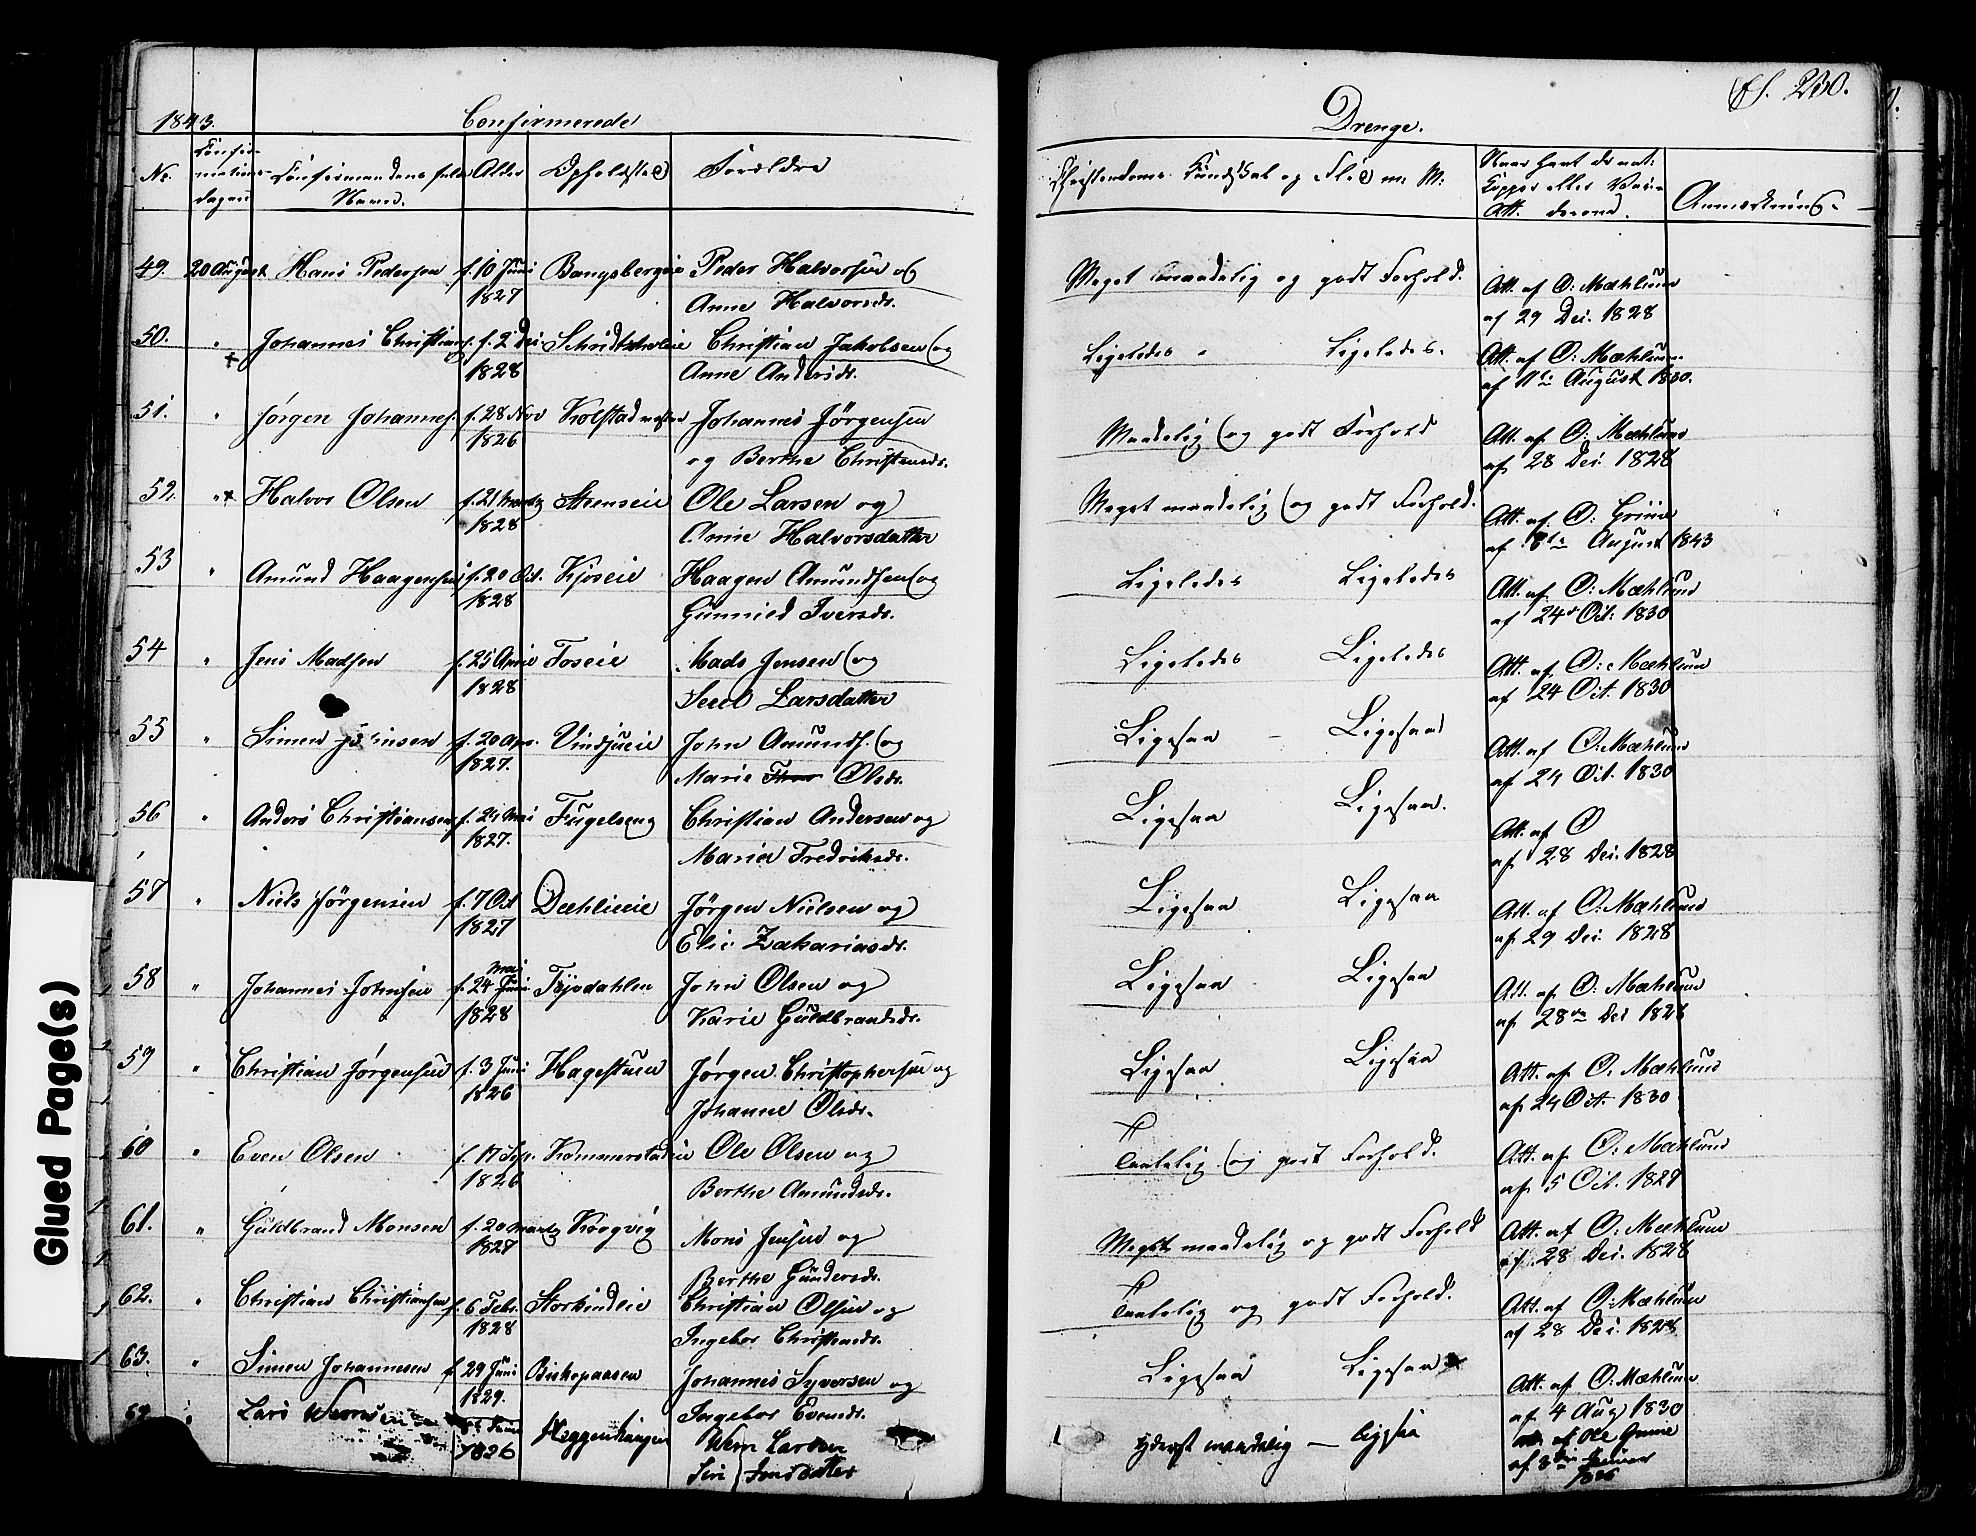 1843.
Confirmerede
Drenge.
No.
Confir-
mations-
dagen
Confirmandens fulde
Navn.
Alder
Opholdsted
Forældre
Christendoms Kundskab og Flid m. M:
Naar havt de nat:
Kopper eller Vacc:
Att. derom.
Anmærkning
49. 20 August Hans Pedersen f. 10 Juni Bangsbergeie Peder Halvorsen og Meget maadelig og godt Forhold. Att. af O: Mæhlum
1827 Anne Halvorsdr. af 29 Dec. 1828
50. " Johannes Christians. f. 2 Dec. Christian Jakobsen og Ligeledes " Ligeledes. Att. af O: Mæhlum
1828 Anne Andersdr. af 1te August 1830.
51. " Jørgen Johannes. f. 28 Nov Kolstad Johannes Jørgensen Maadelig og godt Forhold Att. af O: Mæhlum
1826 og Berthe Christensdr. af 28 Dec. 1828
52. " Halvor Olsen f. 21 Martz Steenseie Ole Larsen og Meget maadelig og godt Forhold. Att. af O:
1828 Anne Halvorsdatter af 8de August 1843
53 " Amund Haagensen f. 20 Oct. Kjoseie Haagen Amundsen og Ligeledes Ligeledes Att. af O: Mæhlum
1828 Gunnild Iversdr. af 24de Oct: 1830
54 " Jens Madsen f. 25 Toseie Mads Jensen og Ligeledes Ligeledes Att. af O: Mæhlum
1828 Larsdatter af 24 Oct. 1830
55 " Simen f. 20 Apr. Vindjueie John Amunds. og Ligesaa - Ligesaa Att. af O: Mæhlum
1827. Marie Olsdr. af 24 Oct. 1830
56 " Anders Christiansen f. 21 Mai Fugelseng Christian Andersen og Ligesaa Ligesaa. Att. af O
1827. Maria Fredriksdr. af 28 Dec. 1828
57 " Niels Jørgensen f. 7 Oct Dæhlieeie Jørgen Nielsen og Ligesaa Ligesaa Att. af O: Mæhlum
1827 Elie Zakariasdr. af 29 Dec. 1828
58 " Johannes Johnsen f. 24 Mai Juni John Olsen og Ligesaa Ligesaa Att. af O: Mæhlum
1828 Karie Guldbrandsdr. af 28de Dec 1828
59 " Christian Jørgensen f. 3 Juni Hagestuen Jørgen Christophersen og Ligesaa Ligesaa Att. af O. Mæhlum
1826 Johanne Olsdr. af 24 Oct. 1830
60 " Even Olsen f. 17 Sep. Kommerstadeie Ole Olsen og Taalelig og godt Forhold. Att. af O: Mæhlum
1826 Berthe Amundsdr. af 5 Oct. 1827
61. " Guldbrand Monsen f. 20 Martz Krogvig Mons Jensen og Meget maadelig og godt Forhold Att. af O: Mæhlum
1827 Berthe Gundersdr. af 28 Dec. 1828
62. " Christian Christiansen f. 6 Febr. Christian Olsen og Taalelig og godt Forhold. Att. af O: Mæhlum
1828 Ingebor Christiansdr. af 28 Dec. 1828
63. " Simen Johannesen f. 29 Juni Bishopaasen Johannes Syversen og Ligesaa Ligesaa Att. af O: Mæhlum
1829. Ingebor Evensdr. af 4 Aug 1830
64 " Lars Heggenhaugen Larsen Yderst maadelig — ligesaa af Ole
1826 Siri Jonsdatter af 3die
Glued Page(s)